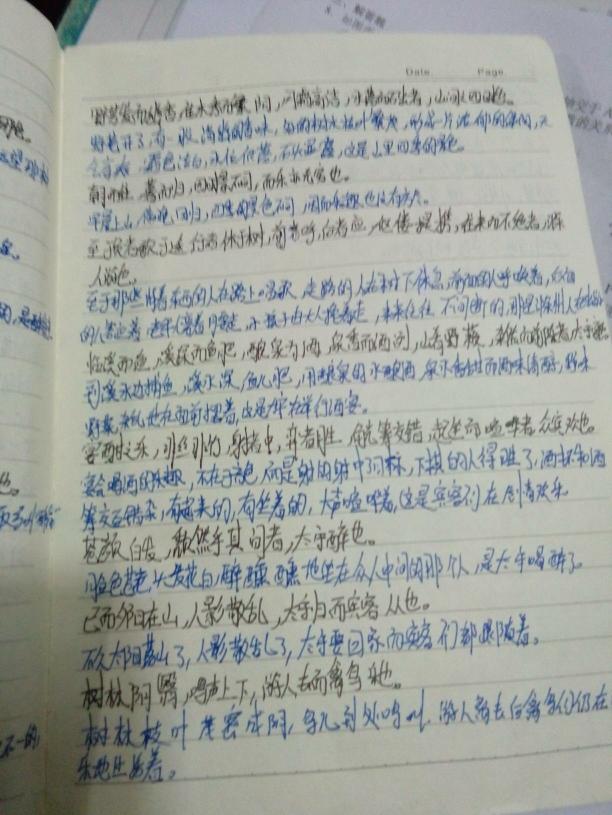 Date Page
野芳发而幽香,佳木秀而繁阴,风霜高洁,水落而石出者,山间之四时也。
野花开了,有一股清幽的香味,好的树木枝叶繁茂,形成一片浓郁的绿荫,天
高气爽,霜色洁白,水位低落,石头显露,这是山里四季的景色。
朝而往,暮而归,四时之景不同,而乐亦无穷也。
早晨上山,傍晚回归,四季的景色不同,因而乐趣也没有穷尽。
至于负者歌于途,行者休于树,前者呼,后者应,伛偻提携,往来而不绝者,滁
人游也。
至于那些背着东西的人在路上唱歌,走路的人在树下休息,前面的人呼唤着,后面
的人答应着,老年人弯着腰走,小孩子由大人搀着走,来来往往不间断的,那是滁州人在出游
临溪而渔,溪深而鱼肥,酿泉为酒,泉香而酒洌,山肴野蔌,杂然而前陈者,太守宴
到溪水边捕鱼,溪水深,鱼儿肥,用酿泉的水酿酒,泉水香甜而酒味清醇,野味
野菜,杂乱地在面前摆着,这是太守在举行酒宴。
宴酣之乐,非丝非竹,射者中,弈者胜,觥筹交错,起坐而喧哗者,众宾欢也。
宴会喝酒的乐趣,不在于音乐,而是射的射中了目标,下棋的人得胜了,酒杯和酒
筹交互错杂,有起来的,有坐着的,大声喧哗着,这是宾客们在尽情欢乐
苍颜白发,颓然乎其间者,太守醉也。
脸色苍老、头发花白,醉醺醺地坐在众人中间的那个人,是太守喝醉了。
已而夕阳在山,人影散乱,太守归而宾客从也。
不久太阳落山了,人影散乱了,太守要回家而宾客们都跟随着。
树林阴翳,鸣声上下,游人去而禽鸟乐也。
树林枝叶茂密成阴,鸟儿到处鸣叫,游人离去后禽鸟们仍在
乐地生活着。